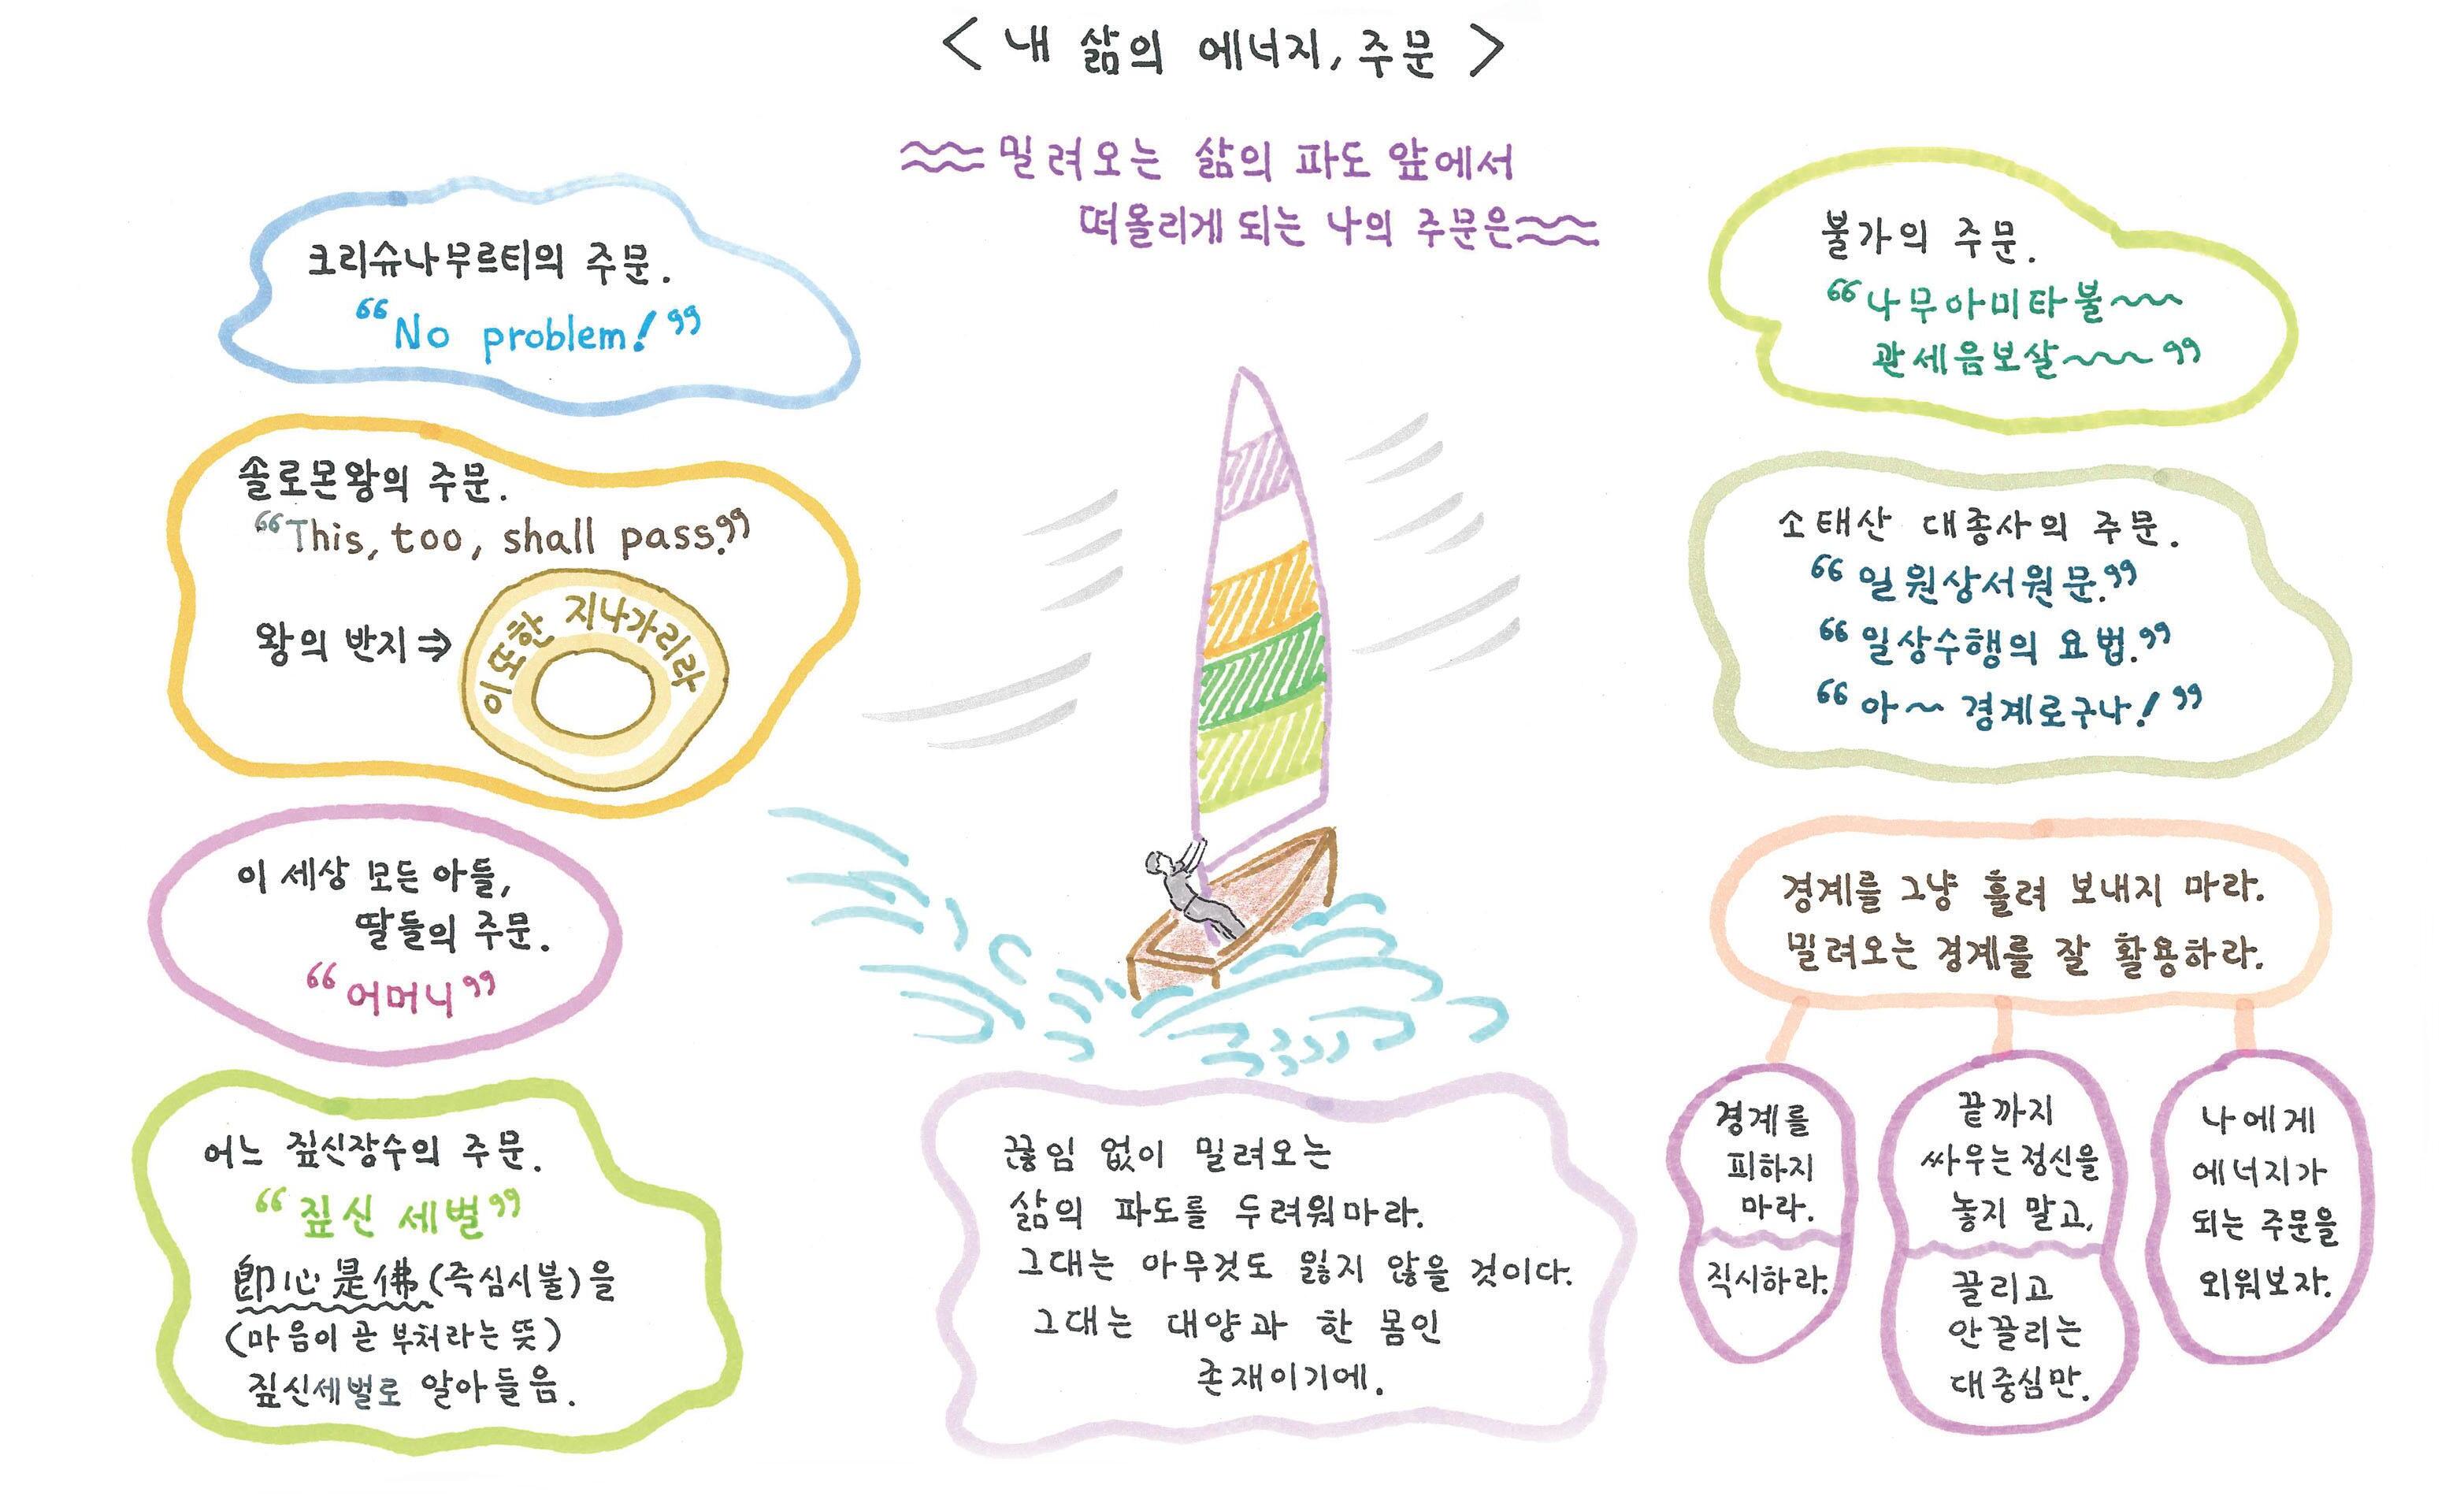 < 내 삶의 에너지, 주문 >
밀려오는 삶의 파도 앞에서
떠올리게 되는 나의 주문은
크리슈나무르티의 주문.
“No problem!”
솔로몬왕의 주문.
“This, too, shall pass.”
왕의 반지 ⇒
이 또한 지나가리라
이 세상 모든 아들,
딸들의 주문.
“어머니”
어느 짚신장수의 주문.
“짚신 세벌”
卽心是佛 (즉심시불)을
(마음이 곧 부처라는 뜻)
짚신세벌로 알아들음.
끊임 없이 밀려오는
삶의 파도를 두려워마라.
그대는 아무것도 잃지 않을 것이다.
그대는 대양과 한 몸인
존재이기에.
불가의 주문.
“나무아미타불~~
관세음보살~~~”
소태산 대종사의 주문.
“일원상서원문.”
“일상수행의 요법.”
“아~ 경계로구나!”
경계를 그냥 흘려 보내지 마라.
밀려오는 경계를 잘 활용하라.
경계를
피하지
마라.
직시하라.
끝까지
싸우는정신을
놓지 말고,
끌리고
안끌리는
대중심만.
나에게
에너지가
되는 주문을
외워보자.